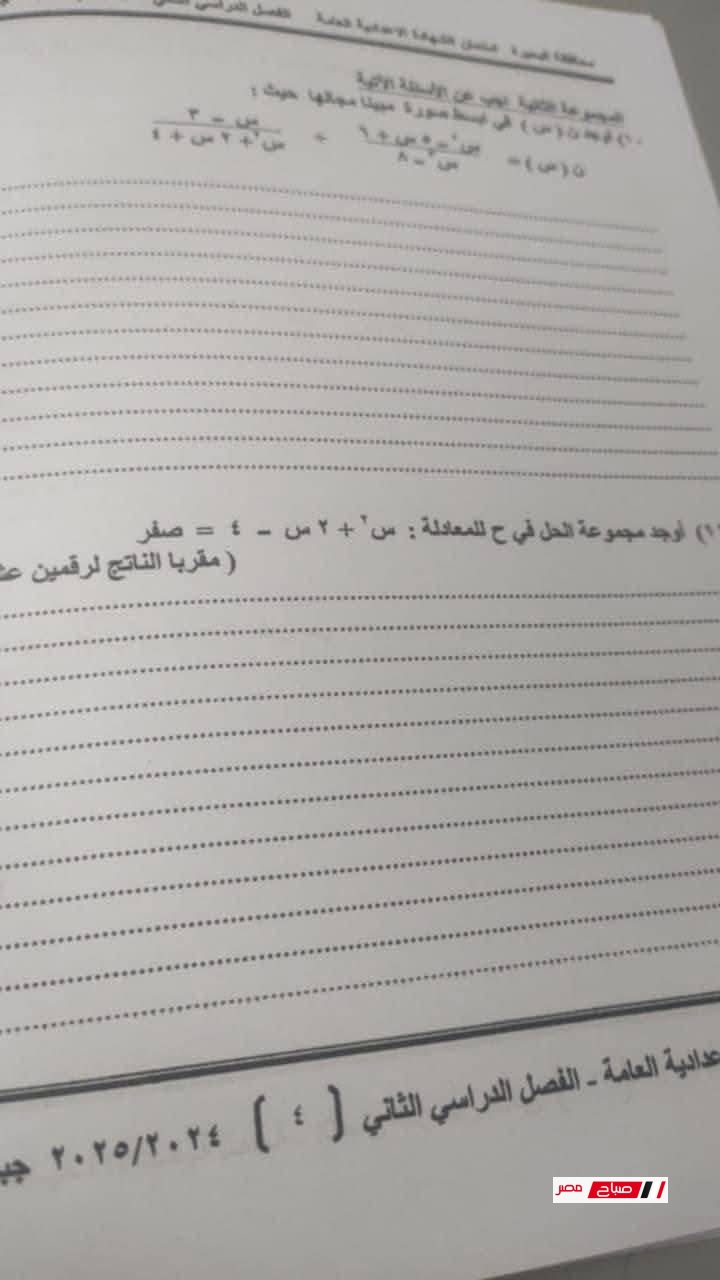 محافظة البحيرة امتحان الشهادة الإعدادية العامة الفصل الدراسي
المجموعة الثانية أجب عن الأسئلة الآتية
١٠) أوجد ن (س) في أبسط صورة مبينا مجالها حيث :
ن (س) = س٢ – ٥ س + ٦ / س٣ – ٨ ÷ س – ٣ / س٢ + ٢ س + ٤
أوجد مجموعة الحل في ح للمعادلة : س٢ + ٢ س – ٤ = صفر
( مقربا الناتج لرقمين
العامة - الفصل الدراسي الثاني ( ٤ ) ٢٠٢٥/٢٠٢٤
صباح مصر